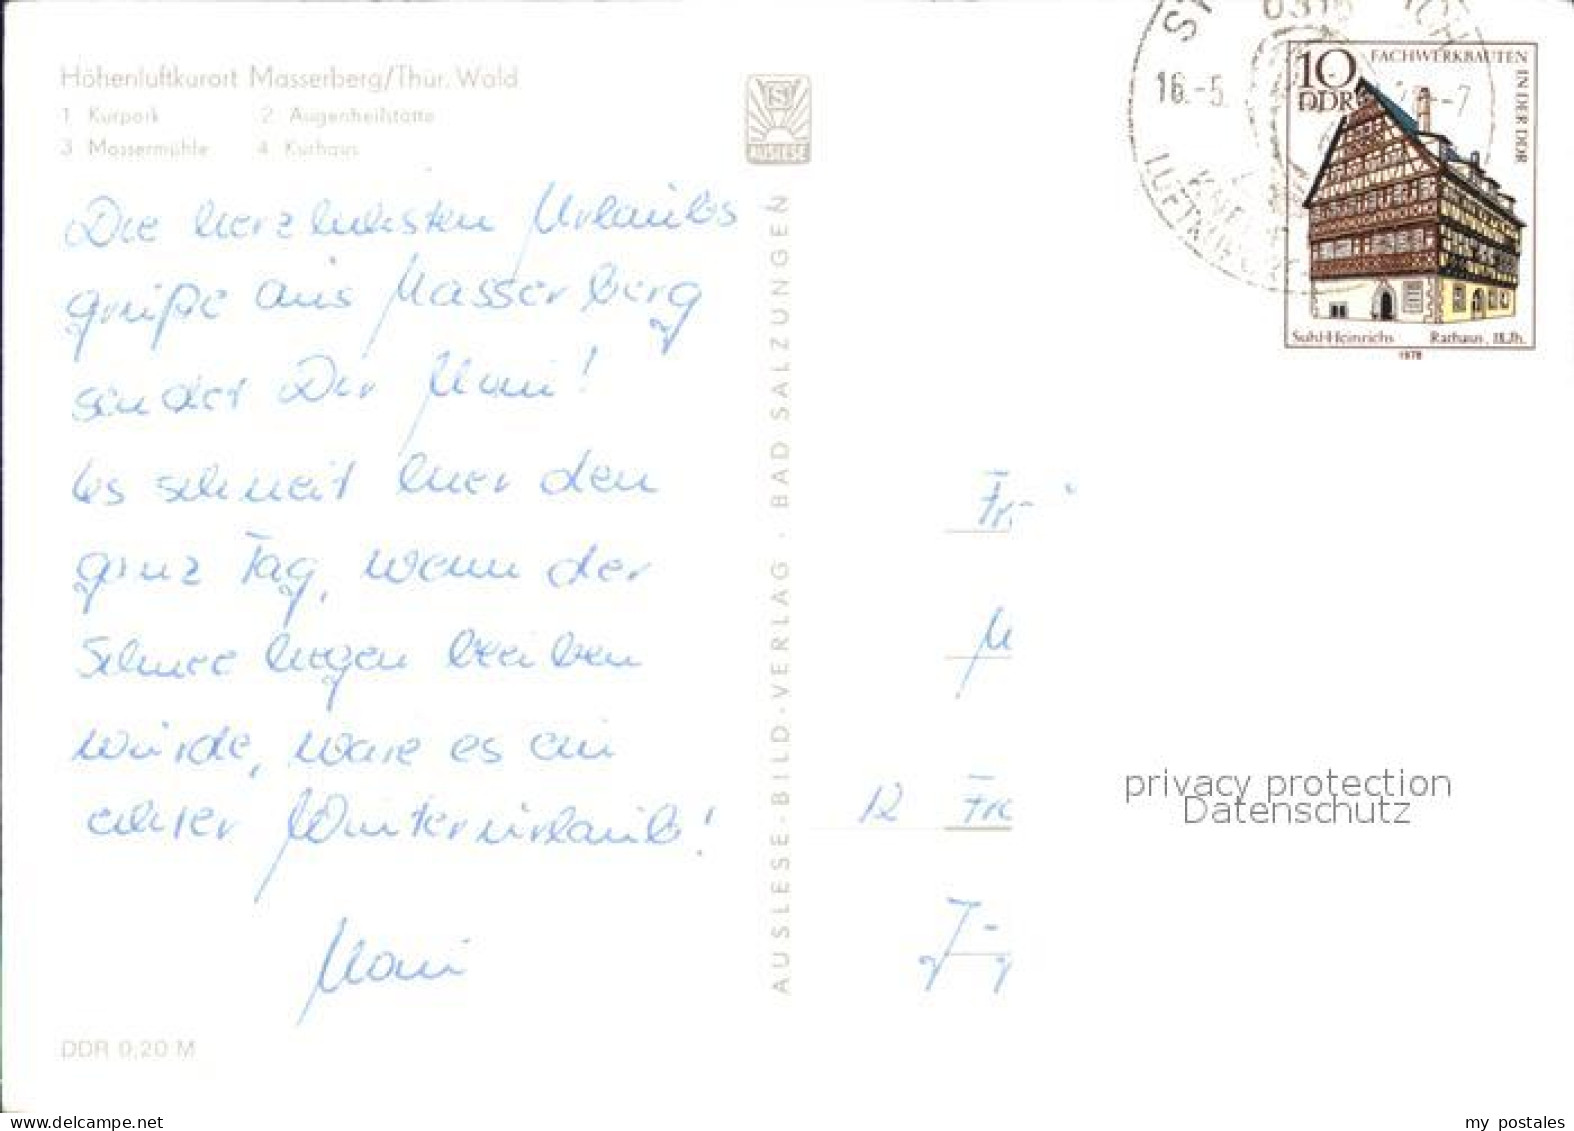 Höhenluftkurort Masserberg/Thür. Wald
1 Kurpark 2 Augenheilstätte
3 Massermühle 4 Kurhaus
AUSLESE
Die herzlichsten Urlaubs
grüße aus Masserberg
sendet Dir Moni!
Es schneit hier den
ganz Tag, wenn der
Schnee liegen bleiben
würde, wäre es ein
echter Winterurlaub!
Moni
DDR 0,20 M
AUSLESE-BILD-VERLAG · BAD SALZUNGEN
16.-5.
-7
LUFTKURORT
10
DDR
FACHWERKBAUTEN
IN DER DDR
Suhl-Heinrichs Rathaus, 18.Jh.
1978
Fr
M
12 Fr
privacy protection
Datenschutz
my postales